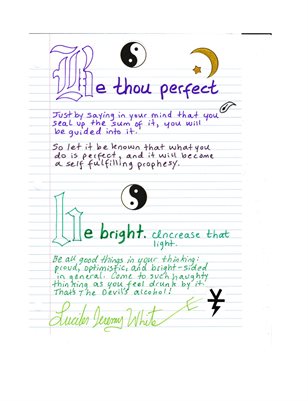 Be thou perfect
Just by saying in your mind that you
seal up the sum of it, you will
be guided into it.
So let it be known that what you
do is perfect, and it will become
a self fulfilling prophesy.
be bright. Increase that
light.
Be all good things in your thinking:
proud, optimistic, and bright-sided
in general. Come to such naughty
thinking as you feel drunk by it.
That's The Devil's alcohol!
Lucifer Jeremy White